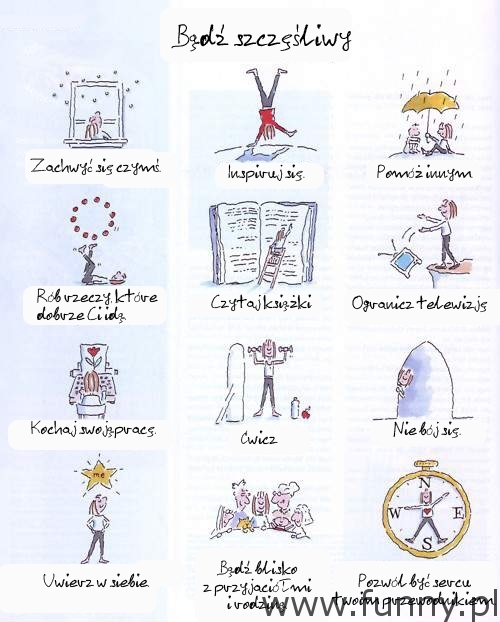 Bądź szczęśliwy
Zachwyć się czymś.
Inspiruj się.
Pomóż innym
Rób rzeczy, które
dobrze Ci idą.
Czytaj książki
Ogranicz telewizję
Kochaj swoją pracę.
Ćwicz
Nie bój się.
me
Uwierz w siebie.
Bądź blisko
z przyjaciółmi
i rodziną.
N
W E
S
Pozwól być sercu
twoim przewodnikiem
www.funny.pl